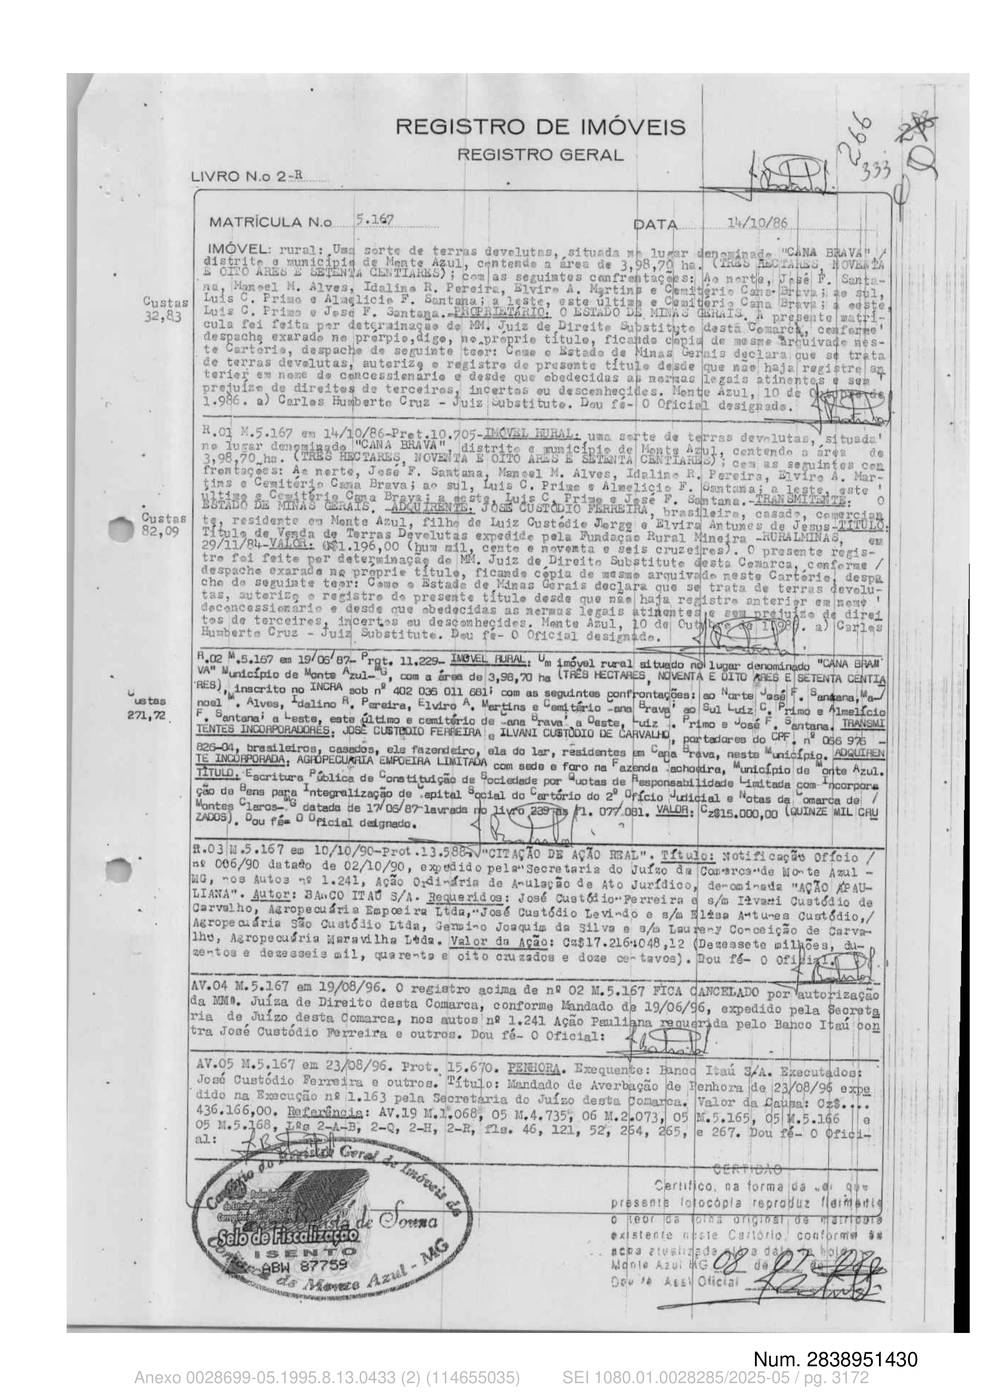 REGISTRO DE IMÓVEIS
REGISTRO GERAL
266
333
LIVRO N.o 2-R
MATRÍCULA N.o 5.167 DATA 14/10/86
IMÓVEL: rural: Uma sorte de terras devolutas, situada no lugar denominado "CANA BRAVA" /
distrito e município de Monte Azul, contendo a área de 3,98,70 ha. (TRÊS HECTARES, NOVENTA
E OITO ARES E SETENTA CENTIARES); com as seguintes confrontações: Ao norte, José F. Santa-
na, Manoel M. Alves, Idalino R. Pereira, Elviro A. Martins e Cemitério Cana-Brava; ao sul,
Luis C. Primo e Almelício F. Santana; a leste, este último e Cemitério Cana Brava; a oeste,
Luis C. Primo e José F. Santana. PROPRIETÁRIO: O ESTADO DE MINAS GERAIS. A presente matri-
cula foi feita por determinação do MM. Juiz de Direito Substituto desta Comarca, conforme'
despacho exarado no prorpio,digo, no próprio título, ficando cópia do mesmo arquivado nes-
te Cartório, despacho do seguinte teor: Como o Estado de Minas Gerais declara que se trata
de terras devolutas, autorizo o registro do presente título desde que não haja registro an
terior em nome do concessionario e desde que obedecidas as normas legais atinentes e sem
prejuízo de direitos de terceiros, incertos ou desconhecidos. Monte Azul, 10 de Outubro de
1.986. a) Carlos Humberto Cruz - Juiz Substituto. Dou fé- O Oficial designado.
Custas
32,83
R.01 M.5.167 em 14/10/86-Prot.10.705-IMÓVEL RURAL: uma sorte de terras devolutas, situada'
no lugar denominado "CANA BRAVA", distrito e município de Monte Azul, contendo a área de
3,98,70 ha. (TRÊS HECTARES, NOVENTA E OITO ARES E SETENTA CENTIARES); com as seguintes con
frontações: Ao norte, José F. Santana, Manoel M. Alves, Idalino R. Pereira, Elviro A. Mar-
tins e Cemitério Cana Brava; ao sul, Luis C. Primo e Almelício F. Santana; a leste, este '
último e Cemitério Cana Brava; a oeste, Luis C. Primo e José F. Santana. TRANSMITENTE: O
ESTADO DE MINAS GERAIS. ADQUIRENTE: JOSÉ CUSTÓDIO FERREIRA, brasileiro, casado, comercian
te, residente em Monte Azul, filho de Luiz Custódio Jorge e Elvira Antunes de Jesus-TÍTULO:
Título de Venda de Terras Devolutas expedido pela Fundação Rural Mineira -RURALMINAS, em
29/11/84-VALOR: Cr$1.196,00 (hum mil, cento e noventa e seis cruzeiros). O presente regis-
tro foi feito por determinação do MM. Juiz de Direito Substituto desta Comarca, conforme /
despacho exarado no próprio título, ficando cópia do mesmo arquivado neste Cartório, despa
cho do seguinte teor: Como o Estado de Minas Gerais declara que se trata de terras devolu-
tas, autorizo o registro do presente título desde que não haja registro anterior em nome '
doconcessionario e desde que obedecidas as normas legais atinentes e sem prejuízo de direi
tos de terceiros, incertos ou desconhecidos. Monte Azul, 10 de Outubro de 1.986. a) Carlos
Humberto Cruz - Juiz Substituto. Dou fé- O Oficial designado.
Custas
82,09
R.02 M.5.167 em 19/06/87- Prot. 11.229- IMOVEL RURAL: Um imóvel rural situado no lugar denominado "CANA BRAM
VA" Município de Monte Azul-MG, com a área de 3,98,70 ha (TRÊS HECTARES, NOVENTA E OITO ARES E SETENTA CENTIA
RES), inscrito no INCRA sob nº 402 036 011 681; com as seguintes confrontações: ao Norte José F. Santana, Ma-/
noel M. Alves, Idalino R. Pereira, Elviro A. Martins e Cemitério Cana Brava; ao Sul Luiz C. Primo e Almelício
F. Santana; a Leste, este último e cemitério de Cana Brava; a Oeste, Luiz C. Primo e José F. Santana. TRANSMI
TENTES INCORPORADORES: JOSÉ CUSTÓDIO FERREIRA e ILVANI CUSTÓDIO DE CARVALHO, portadores do CPF. nº 056 976 -
826-04, brasileiros, casados, ele fazendeiro, ela do lar, residentes em Cana Brava, neste Município. ADQUIREN
TE INCORPORADA: AGROPECUÁRIA EMPOEIRA LIMITADA com sede e foro na Fazenda Cachoeira, Município de Monte Azul.
TÍTULO. Escritura Pública de Constituição de Sociedade por Quotas de Responsabilidade Limitada com Incorpora
ção de Bens para Integralização de Capital Social do Cartório do 2º Ofício Judicial e Notas da Comarca de /
Montes Claros-MG datada de 17/06/87-lavrada no livro 239 às fl. 077/081. VALOR: Cz$15.000,00 (QUINZE MIL CRU
ZADOS). Dou fé- O Oficial deignado.
Custas
271,72
R.03 M.5.167 em 10/10/90-Prot.13.588-"CITAÇÃO DE AÇÃO REAL". Título: Notificação Ofício /
nº 006/90 datado de 02/10/90, expedido pela Secretaria do Juízo da Comarca de Monte Azul -
MG, nos Autos nº 1.241, Ação Ordinária de Anulação de Ato Jurídico, denominada "AÇÃO /PAU-
LIANA". Autor: BANCO ITAÚ S/A. Requeridos: José Custódio Ferreira e s/m Ilvani Custódio de
Carvalho, Agropecuária Empoeira Ltda, José Custódio Levindo e s/m Elisa Antunes Custódio,/
Agropecuária São Custódio Ltda, Germino Joaquim da Silva e s/m Laureny Conceição de Carva-
lho, Agropecuária Maravilha Ltda. Valor da Ação: Cz$17.216.048,12 (Dezessete milhões, du-
zentos e dezesseis mil, quarenta e oito cruzados e doze centavos). Dou fé- O Oficial.
AV.04 M.5.167 em 19/08/96. O registro acima de nº 02 M.5.167 FICA CANCELADO por autorização
da MMª. Juíza de Direito desta Comarca, conforme Mandado de 19/06/96, expedido pela Secreta
ria de Juízo desta Comarca, nos autos nº 1.241 Ação Pauliana requerida pelo Banco Itaú con
tra José Custódio Ferreira e outros. Dou fé- O Oficial:
AV.05 M.5.167 em 23/08/96. Prot. 15.670. PENHORA. Exequente: Banco Itaú S/A. Executados:
José Custódio Ferreira e outros. Título: Mandado de Averbação de Penhora de 23/08/96 expe
dido na Execução nº 1.163 pela Secretaria do Juízo desta Comarca. Valor da Causa: Cz$....
436.166,00. Referência: AV.19 M.1.068, 05 M.4.735, 06 M.2.073, 05 M.5.165, 05 M.5.166 e
05 M.5.168, Lºs 2-A-B, 2-Q, 2-H, 2-R, fls. 46, 121, 52, 264, 265, e 267. Dou fé- O Ofici-
al:
Cartório do Registro Geral de Imóveis da
Comarca de Monte Azul - MG
Batista de Souza
Selo de Fiscalização
ISENTO
ABW 87759
CERTIDÃO
Certifico, na forma da Lei que
presente fotocópia reproduz fielmente
o teor da folha original da matrícula
existente neste Cartório, conforme as
Monte Azul MG 08 de 07 de
Dou fé Ass/ Oficial
Num. 2838951430
Anexo 0028699-05.1995.8.13.0433 (2) (114655035) SEI 1080.01.0028285/2025-05 / pg. 3172